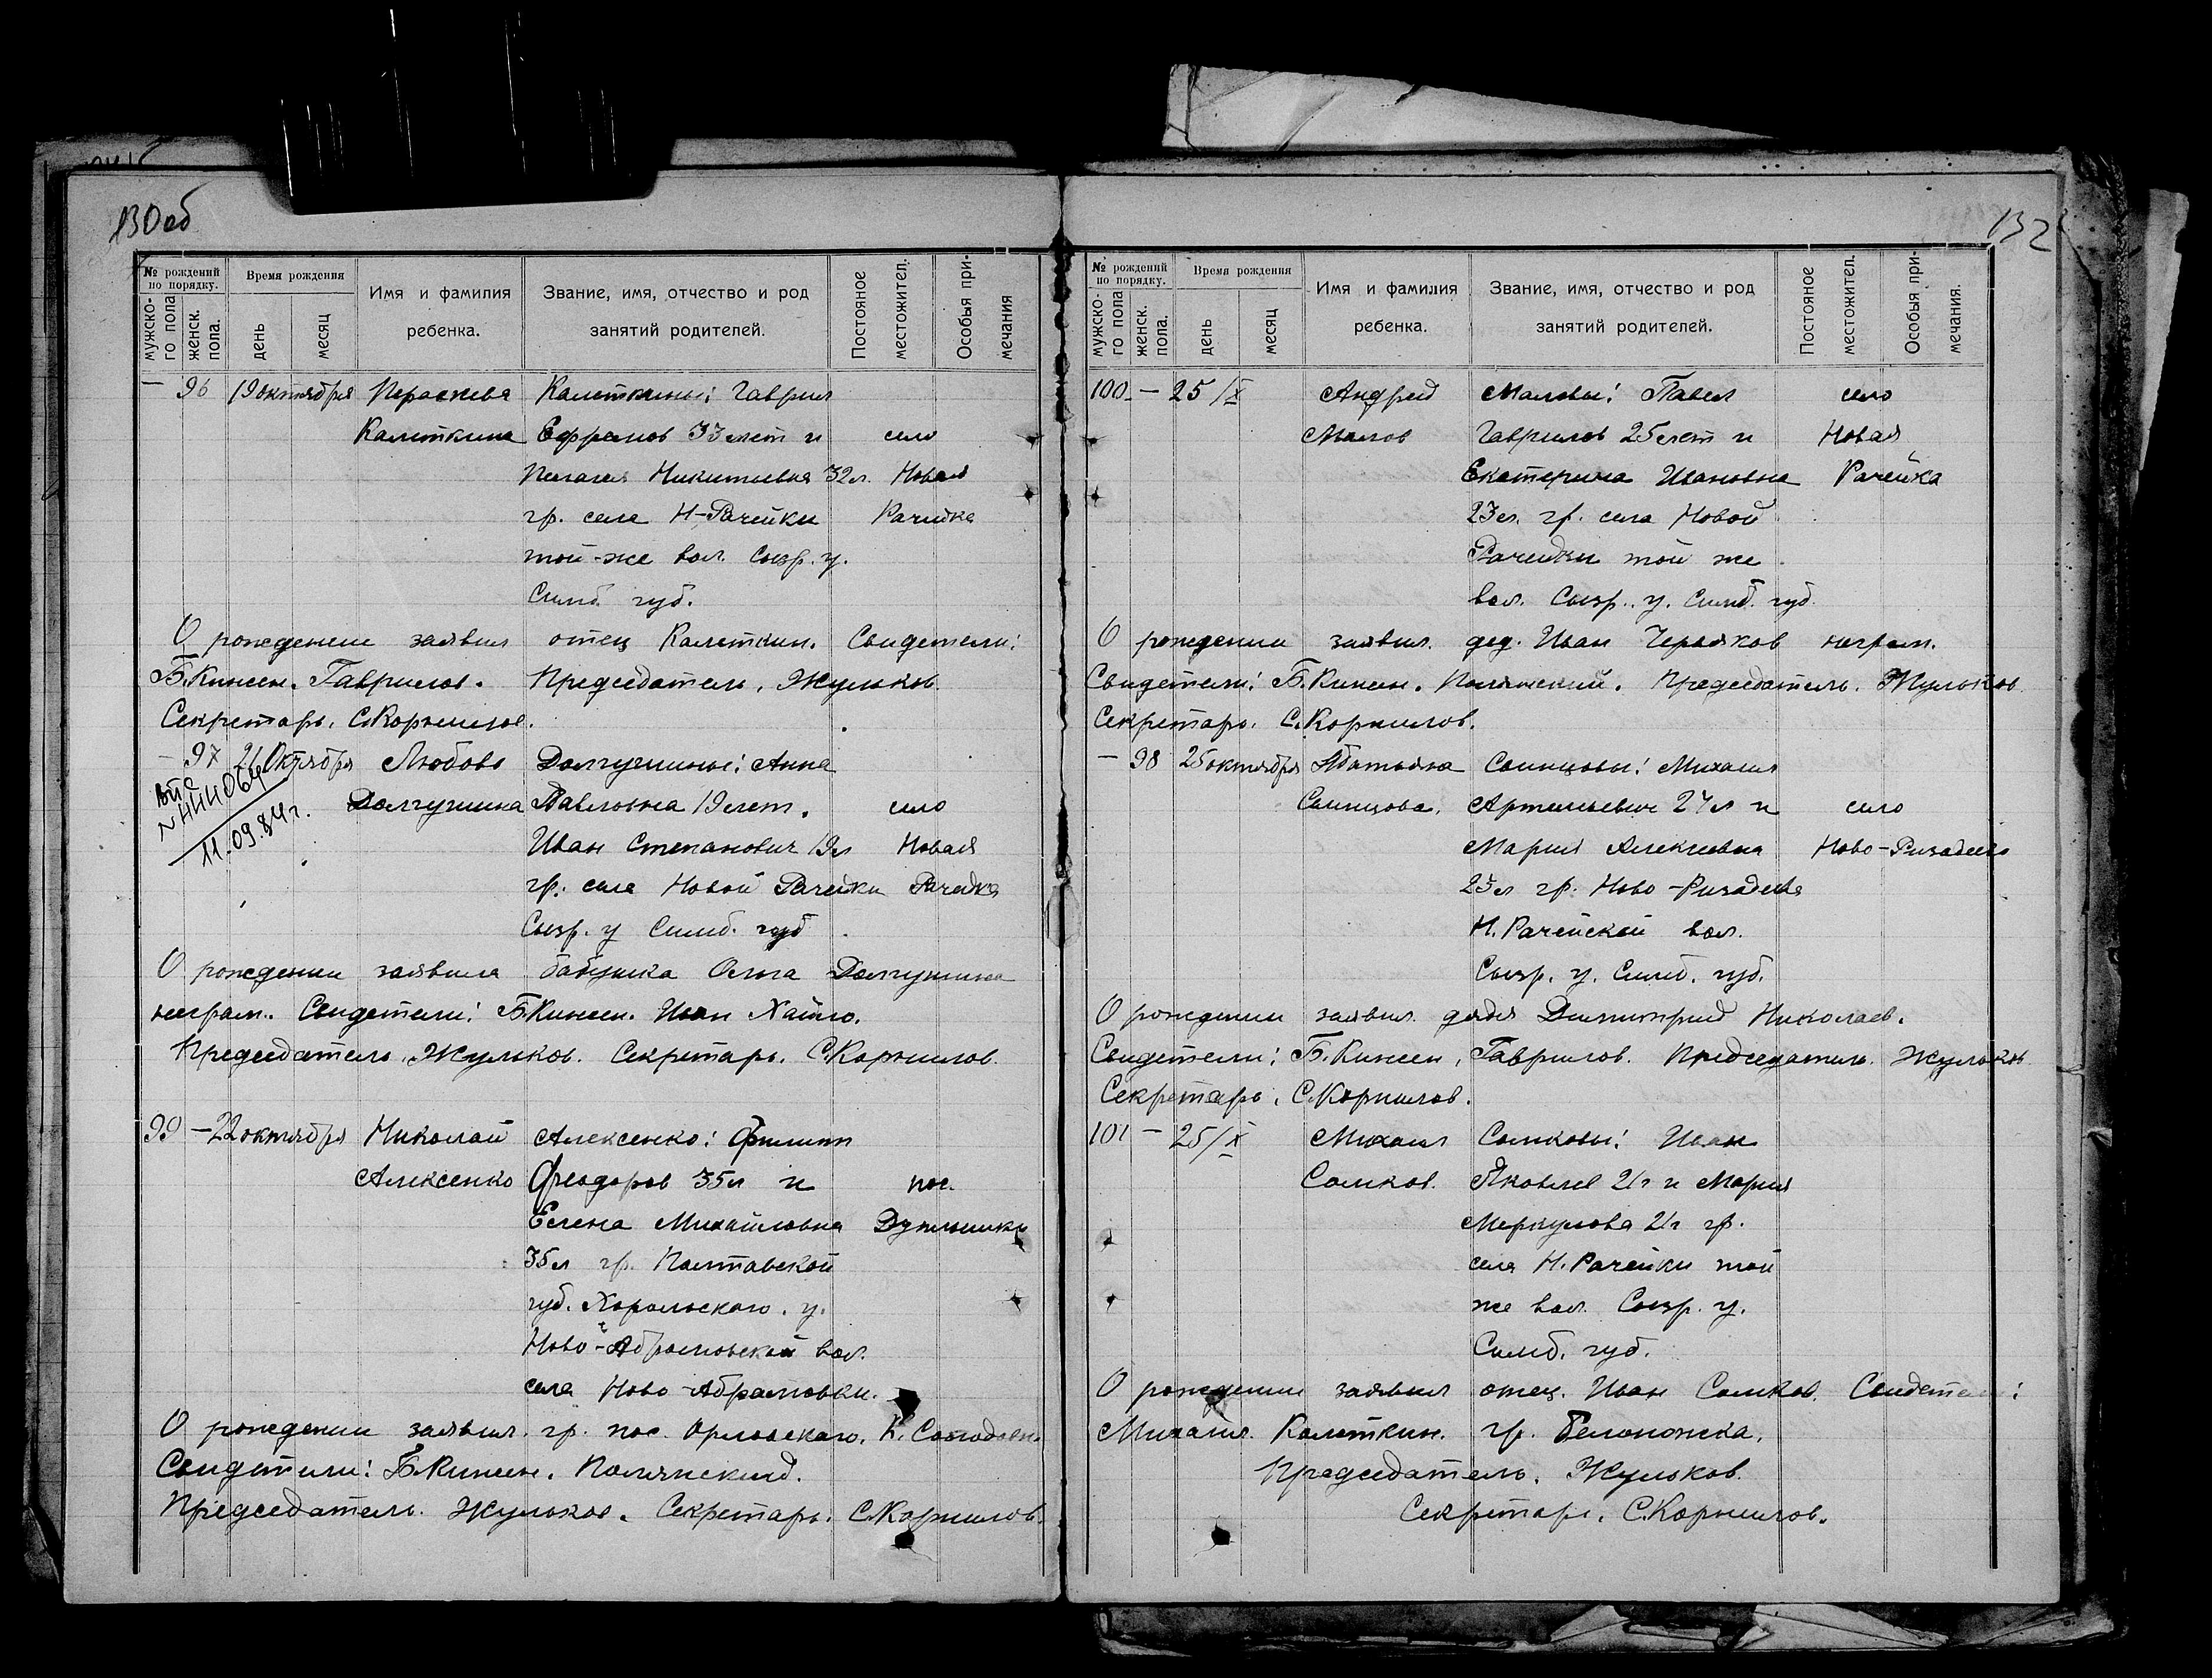 130об
№ рождений по порядку.
Время рождения
Имя и фамилия ребенка.
Звание, имя, отчество и род занятий родителей.
Постоянное местожител.
Особыя примечания
мужского пола
женск. пола.
день
месяц
— 96 19 октября Параскева Калеткины: Гаврил
Калеткина Ефремов 33 лет и село
Пелагея Никитьевна 32 л. Новая
гр. села Н-Рачейки Рачейка
той-же вол. Сызр. у.
Симб. губ.
О рождении заявил отец Калеткин. Свидетели:
Б. Кинсен. Гаврилов. Председатель. Жульков.
Секретарь. С. Корнилов.
— 97 21 Октября Любовь Долгушины: Анна
Долгушина Павловна 19 лет. село
11.09.84 г.
Иван Степанович 19 л Новая
гр. села Новой Рачейки Рачейка
Сызр. у Симб. губ
О рождении заявила бабушка Ольга Долгушина
неграм. Свидетели: Б. Кинсен. Иван
Председатель Жульков. Секретарь. С. Корнилов.
99 — 22 октября Николай Алексенко: Филипп
Алексенко Феодоров 35 л и пос.
Елена Михайловна
35 л гр. Полтавской
губ. Хорольского. у.
Ново-Абрамовской вол.
села Ново-Абрамовки.
О рождении заявил. гр. пос. Орловского. К.
Свидетели: Б. Кинсен. Полянский.
Председатель. Жульков. Секретарь. С. Корнилов.
132
№ рождений по порядку.
Время рождения
Имя и фамилия ребенка.
Звание, имя, отчество и род занятий родителей.
Постоянное местожител.
Особыя примечания.
мужского пола
женск. пола.
день
месяц
100 — 25/X Андрей Маловы: Павел село
Малов Гаврилов 25 лет и Новая
Екатерина Ивановна Рачейка
23 л. гр. села Новой
Рачейки той же
вол. Сызр. у. Симб. губ.
О рождении заявил. дед. Иван Черняков неграм.
Свидетели: Б. Кинсен. Полянский. Председатель. Жульков
Секретарь. С. Корнилов.
— 98 25 октября Татьяна Свинцовы: Михаил
Свинцова. Артемьевич 24 л и село
Мария Алексеевна Ново-Ризадеево
23 л гр. Ново-Ризадеева
Н. Рачейской вол.
Сызр. у. Симб. губ.
О рождении заявил дядя Димитрий Николаев.
Свидетели: Б. Кинсен, Гаврилов. Председатель. Жульков
Секретарь. С. Корнилов.
101 — 25/X Михаил Сомковы: Иван
Сомков. Яковлев 21 г и Мария
Меркулова 21 г гр.
села Н. Рачейки той
же вол. Сызр. у.
Симб. губ.
О рождении заявил отец. Иван Сомков. Свидетели:
Михаил Калеткин. гр. Белоножка.
Председатель. Жульков.
Секретарь. С. Корнилов.